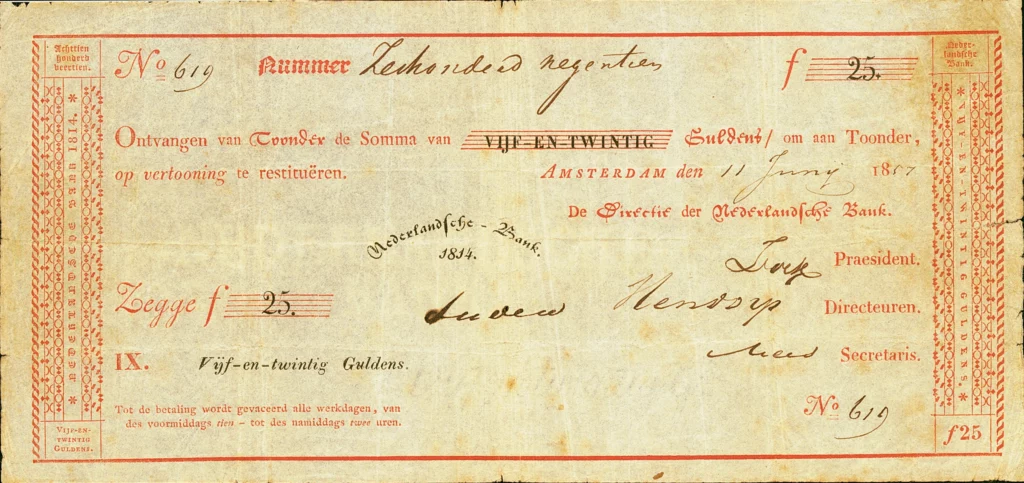 Achttien
honderd
veertien.
Neder-
landsche
Bank.
No 619 Nummer Zeshonderd negentien f 25.
Ontvangen van Toonder de Somma van VIJF-EN-TWINTIG Guldens/ om aan Toonder,
op vertooning te restituëren. AMSTERDAM den 11 Junij 1857
De Directie der Nederlandsche Bank.
Nederlandsche-Bank.
1814.
Praesident.
Zegge f 25.
Directeuren.
Secretaris.
IX. Vijf-en-twintig Guldens.
Tot de betaling wordt gevaceerd alle werkdagen, van
des voormiddags tien - tot des namiddags twee uren.
No 619
VIJF-EN-
TWINTIG
GULDENS.
f25
* NEDERLANDSCHE BANK 1814. *
* VIJF-EN-TWINTIG GULDENS. *